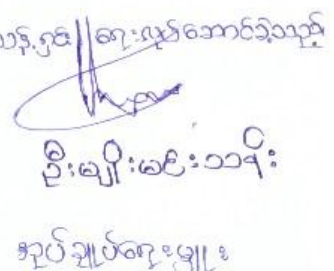 သန့်ရှင်းရေးလုပ်ဆောင်ခဲ့သည့်
ဦးမျိုးမင်းသိန်း
အုပ်ချုပ်ရေးမှူး